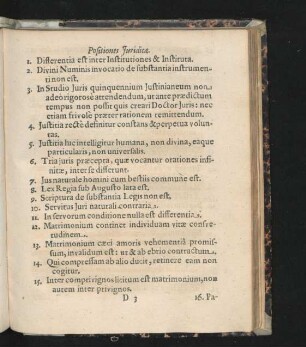 Positiones Juridicæ.
1. Differentia est inter Institutiones & Instituta.
2. Divini Numinis invocatio de substantia instrumenti non est.
3. In Studio Juris quinquennium Justinianeum non
adeò rigorosè attendendum, ut ante prædictum
tempus non possit quis creari Doctor Juris: nec
etiam frivolè præter rationem remittendum.
4. Justitia rectè definitur constans & perpetua voluntas.
5. Justitia hîc intelligitur humana, non divina, eaque
particularis, non universalis.
6. Tria juris præcepta, quæ vocantur orationes infinitæ, inter se differunt.
7. Jus naturale homini cum bestiis commune est.
8. Lex Regia sub Augusto lata est.
9. Scriptura de substantia Legis non est.
10. Servitus Juri naturali contraria.
11. In servorum conditione nulla est differentia.
12. Matrimonium continet individuam vitæ consvetudinem.
13. Matrimonium cæci amoris vehementiâ promissum, invalidum est: ut & ab ebrio contractum.
14. Qui compressam ab alio ducit, retinere eam non
cogitur.
15. Inter comprivignos licitum est matrimonium, non
autem inter privignos.
D 3 16. Pa-